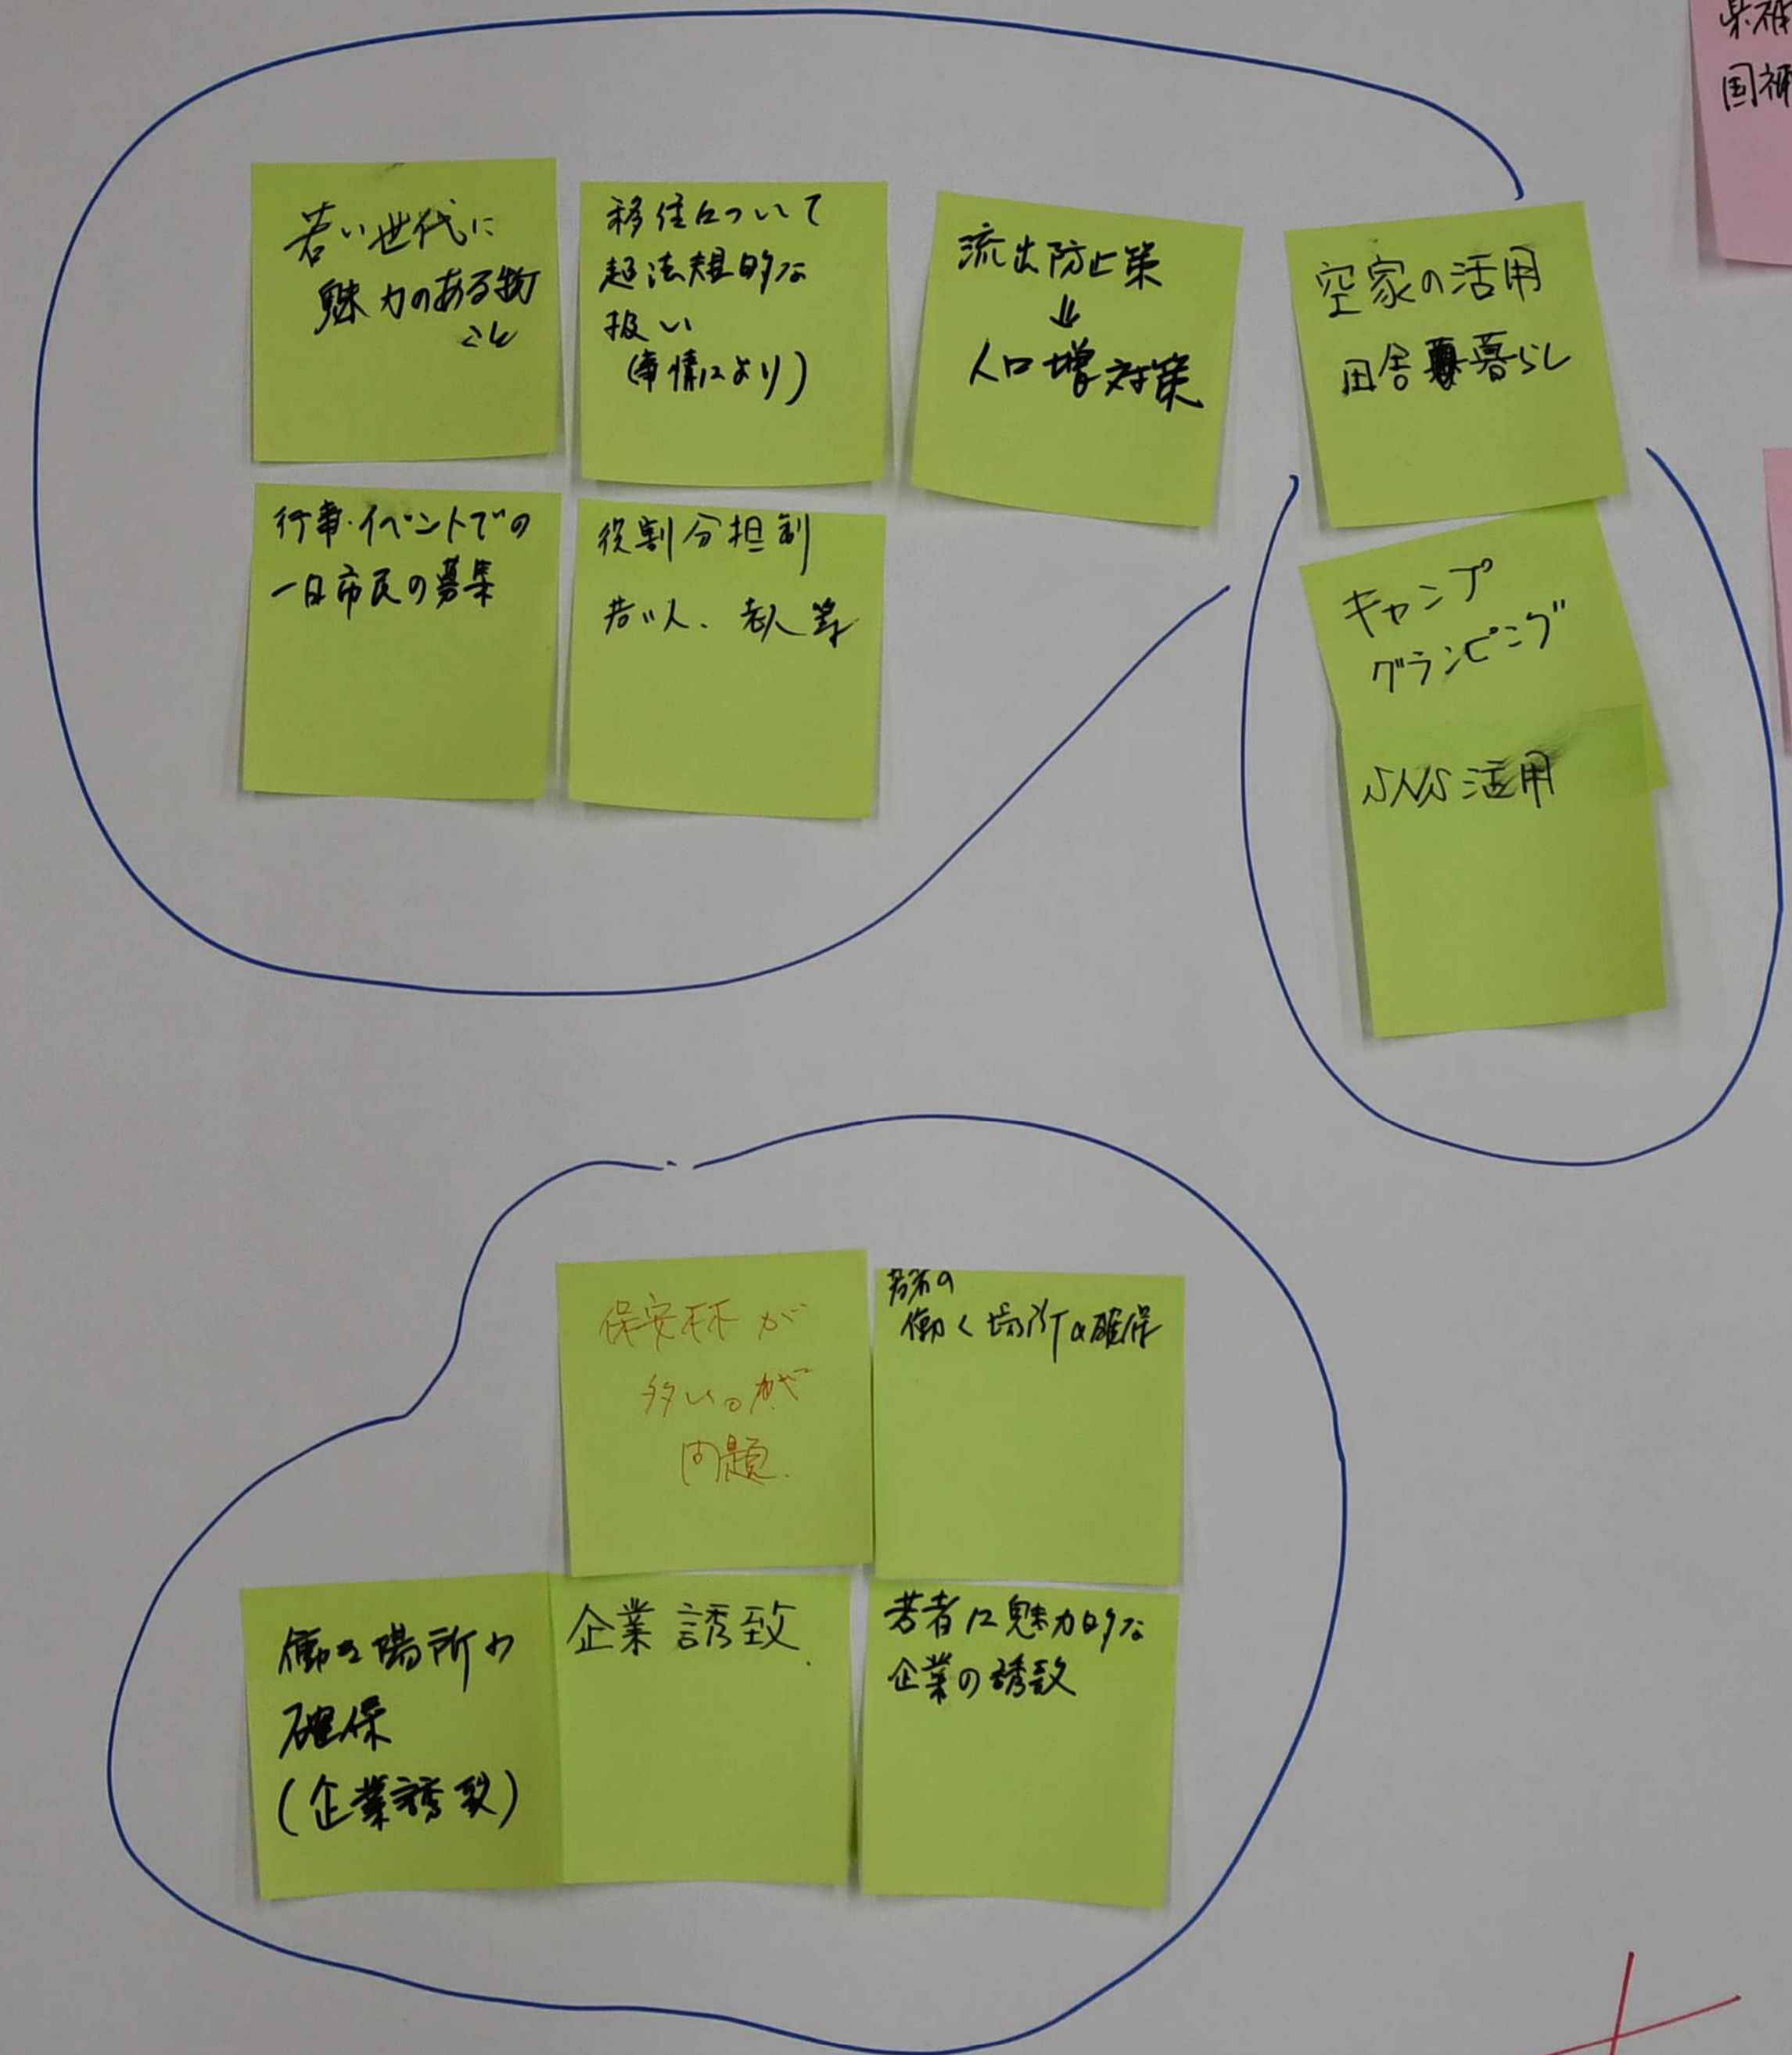 若い世代に
魅力のある物
こと
移住について
超法規的な
扱い
(事情により)
流出防止策
⇓
人口増対策
空家の活用
田舎暮らし
行事・イベントでの
一日市民の募集
役割分担制
若い人、老人等
キャンプ
グランピング
SNS活用
保安林が
多いのが
問題.
若者の
働く場所の確保
働き場所の
確保
(企業誘致)
企業誘致.
若者に魅力的な
企業の誘致
県補
国補